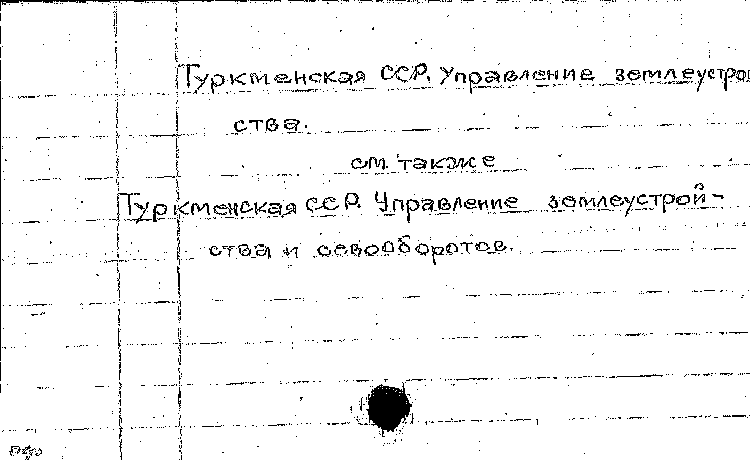 Туркменская ССР. Управление землеустрой
ства.
см. также
Туркменская ССР. Управление землеустрой-
ства и севооборотов.